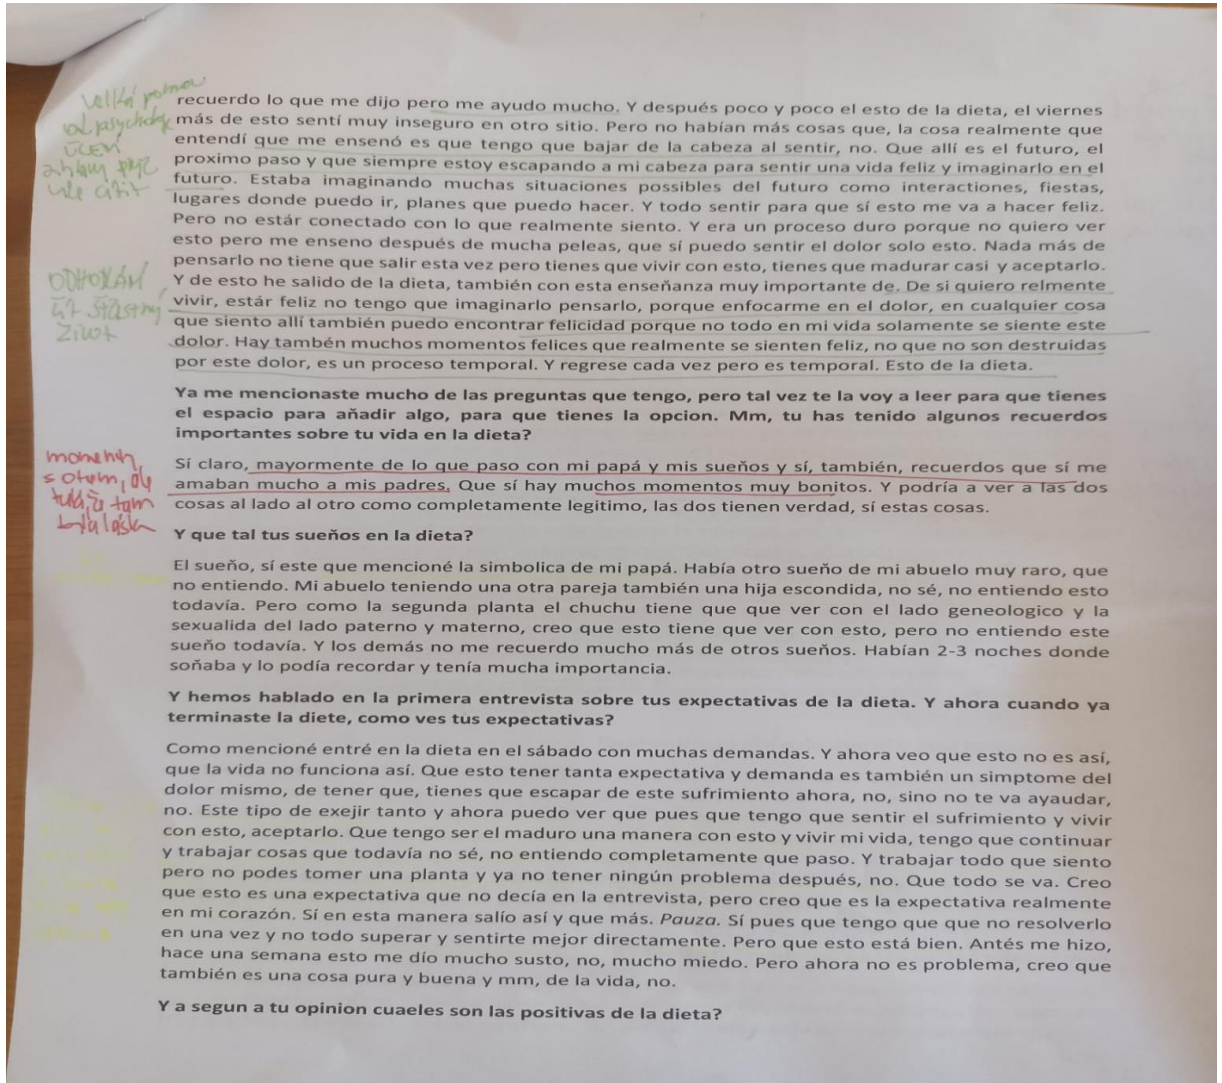 recuerdo lo que me dijo pero me ayudo mucho. Y después poco y poco el esto de la dieta, el viernes
más de esto sentí muy inseguro en otro sitio. Pero no habían más cosas que, la cosa realmente que
entendí que me ensenó es que tengo que bajar de la cabeza al sentir, no. Que allí es el futuro, el
proximo paso y que siempre estoy escapando a mi cabeza para sentir una vida feliz y imaginarlo en el
futuro. Estaba imaginando muchas situaciones possibles del futuro como interactiones, fiestas,
lugares donde puedo ir, planes que puedo hacer. Y todo sentir para que sí esto me va a hacer feliz.
Pero no estár conectado con lo que realmente siento. Y era un proceso duro porque no quiero ver
esto pero me enseno después de mucha peleas, que sí puedo sentir el dolor solo esto. Nada más de
pensarlo no tiene que salir esta vez pero tienes que vivir con esto, tienes que madurar casi y aceptarlo.
Y de esto he salido de la dieta, también con esta enseñanza muy importante de. De si quiero relmente
vivir, estár feliz no tengo que imaginarlo pensarlo, porque enfocarme en el dolor, en cualquier cosa
que siento allí también puedo encontrar felicidad porque no todo en mi vida solamente se siente este
dolor. Hay tambén muchos momentos felices que realmente se sienten feliz, no que no son destruidas
por este dolor, es un proceso temporal. Y regrese cada vez pero es temporal. Esto de la dieta.
ODHODLÁN
ŽÍT ŠŤASTNÝ
ŽIVOT
Ya me mencionaste mucho de las preguntas que tengo, pero tal vez te la voy a leer para que tienes
el espacio para añadir algo, para que tienes la opcion. Mm, tu has tenido algunos recuerdos
importantes sobre tu vida en la dieta?
Sí claro, mayormente de lo que paso con mi papá y mis sueños y sí, también, recuerdos que sí me
amaban mucho a mis padres. Que sí hay muchos momentos muy bonitos. Y podría a ver a las dos
cosas al lado al otro como completamente legitimo, las dos tienen verdad, sí estas cosas.
momenty
s otcem, ale
také, že tam
byla láska
Y que tal tus sueños en la dieta?
El sueño, sí este que mencioné la simbolica de mi papá. Había otro sueño de mi abuelo muy raro, que
no entiendo. Mi abuelo teniendo una otra pareja también una hija escondida, no sé, no entiendo esto
todavía. Pero como la segunda planta el chuchu tiene que que ver con el lado geneologico y la
sexualida del lado paterno y materno, creo que esto tiene que ver con esto, pero no entiendo este
sueño todavía. Y los demás no me recuerdo mucho más de otros sueños. Habían 2-3 noches donde
soñaba y lo podía recordar y tenía mucha importancia.
Y hemos hablado en la primera entrevista sobre tus expectativas de la dieta. Y ahora cuando ya
terminaste la diete, como ves tus expectativas?
Como mencioné entré en la dieta en el sábado con muchas demandas. Y ahora veo que esto no es así,
que la vida no funciona así. Que esto tener tanta expectativa y demanda es también un simptome del
dolor mismo, de tener que, tienes que escapar de este sufrimiento ahora, no, sino no te va ayaudar,
no. Este tipo de exejir tanto y ahora puedo ver que pues que tengo que sentir el sufrimiento y vivir
con esto, aceptarlo. Que tengo ser el maduro una manera con esto y vivir mi vida, tengo que continuar
y trabajar cosas que todavía no sé, no entiendo completamente que paso. Y trabajar todo que siento
pero no podes tomer una planta y ya no tener ningún problema después, no. Que todo se va. Creo
que esto es una expectativa que no decía en la entrevista, pero creo que es la expectativa realmente
en mi corazón. Sí en esta manera salío así y que más. Pauza. Sí pues que tengo que que no resolverlo
en una vez y no todo superar y sentirte mejor directamente. Pero que esto está bien. Antés me hizo,
hace una semana esto me dío mucho susto, no, mucho miedo. Pero ahora no es problema, creo que
también es una cosa pura y buena y mm, de la vida, no.
Y a segun a tu opinion cuaeles son las positivas de la dieta?